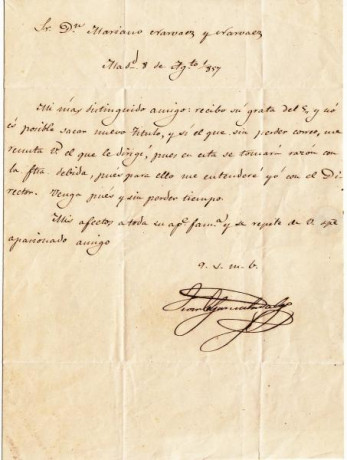 Sr. Dn. Mariano Narvaez y Narvaez
Madd. 8 de Agto. 1857
Mi mas distinguido amigo: recibo su grata del 5, y no
es posible sacar nuevo titulo, y si el que sin perder correo, me
remita Vd. el que le dirigí, pues en esta se tomará razón con
la fha debida, pues para ello me entenderé yó con el Di
rector. Venga pues y sin perder tiempo.
Mis afectos a toda su apa. fama. y se repite de V. spe
apasionado amigo
q. s. m. b.
Juan